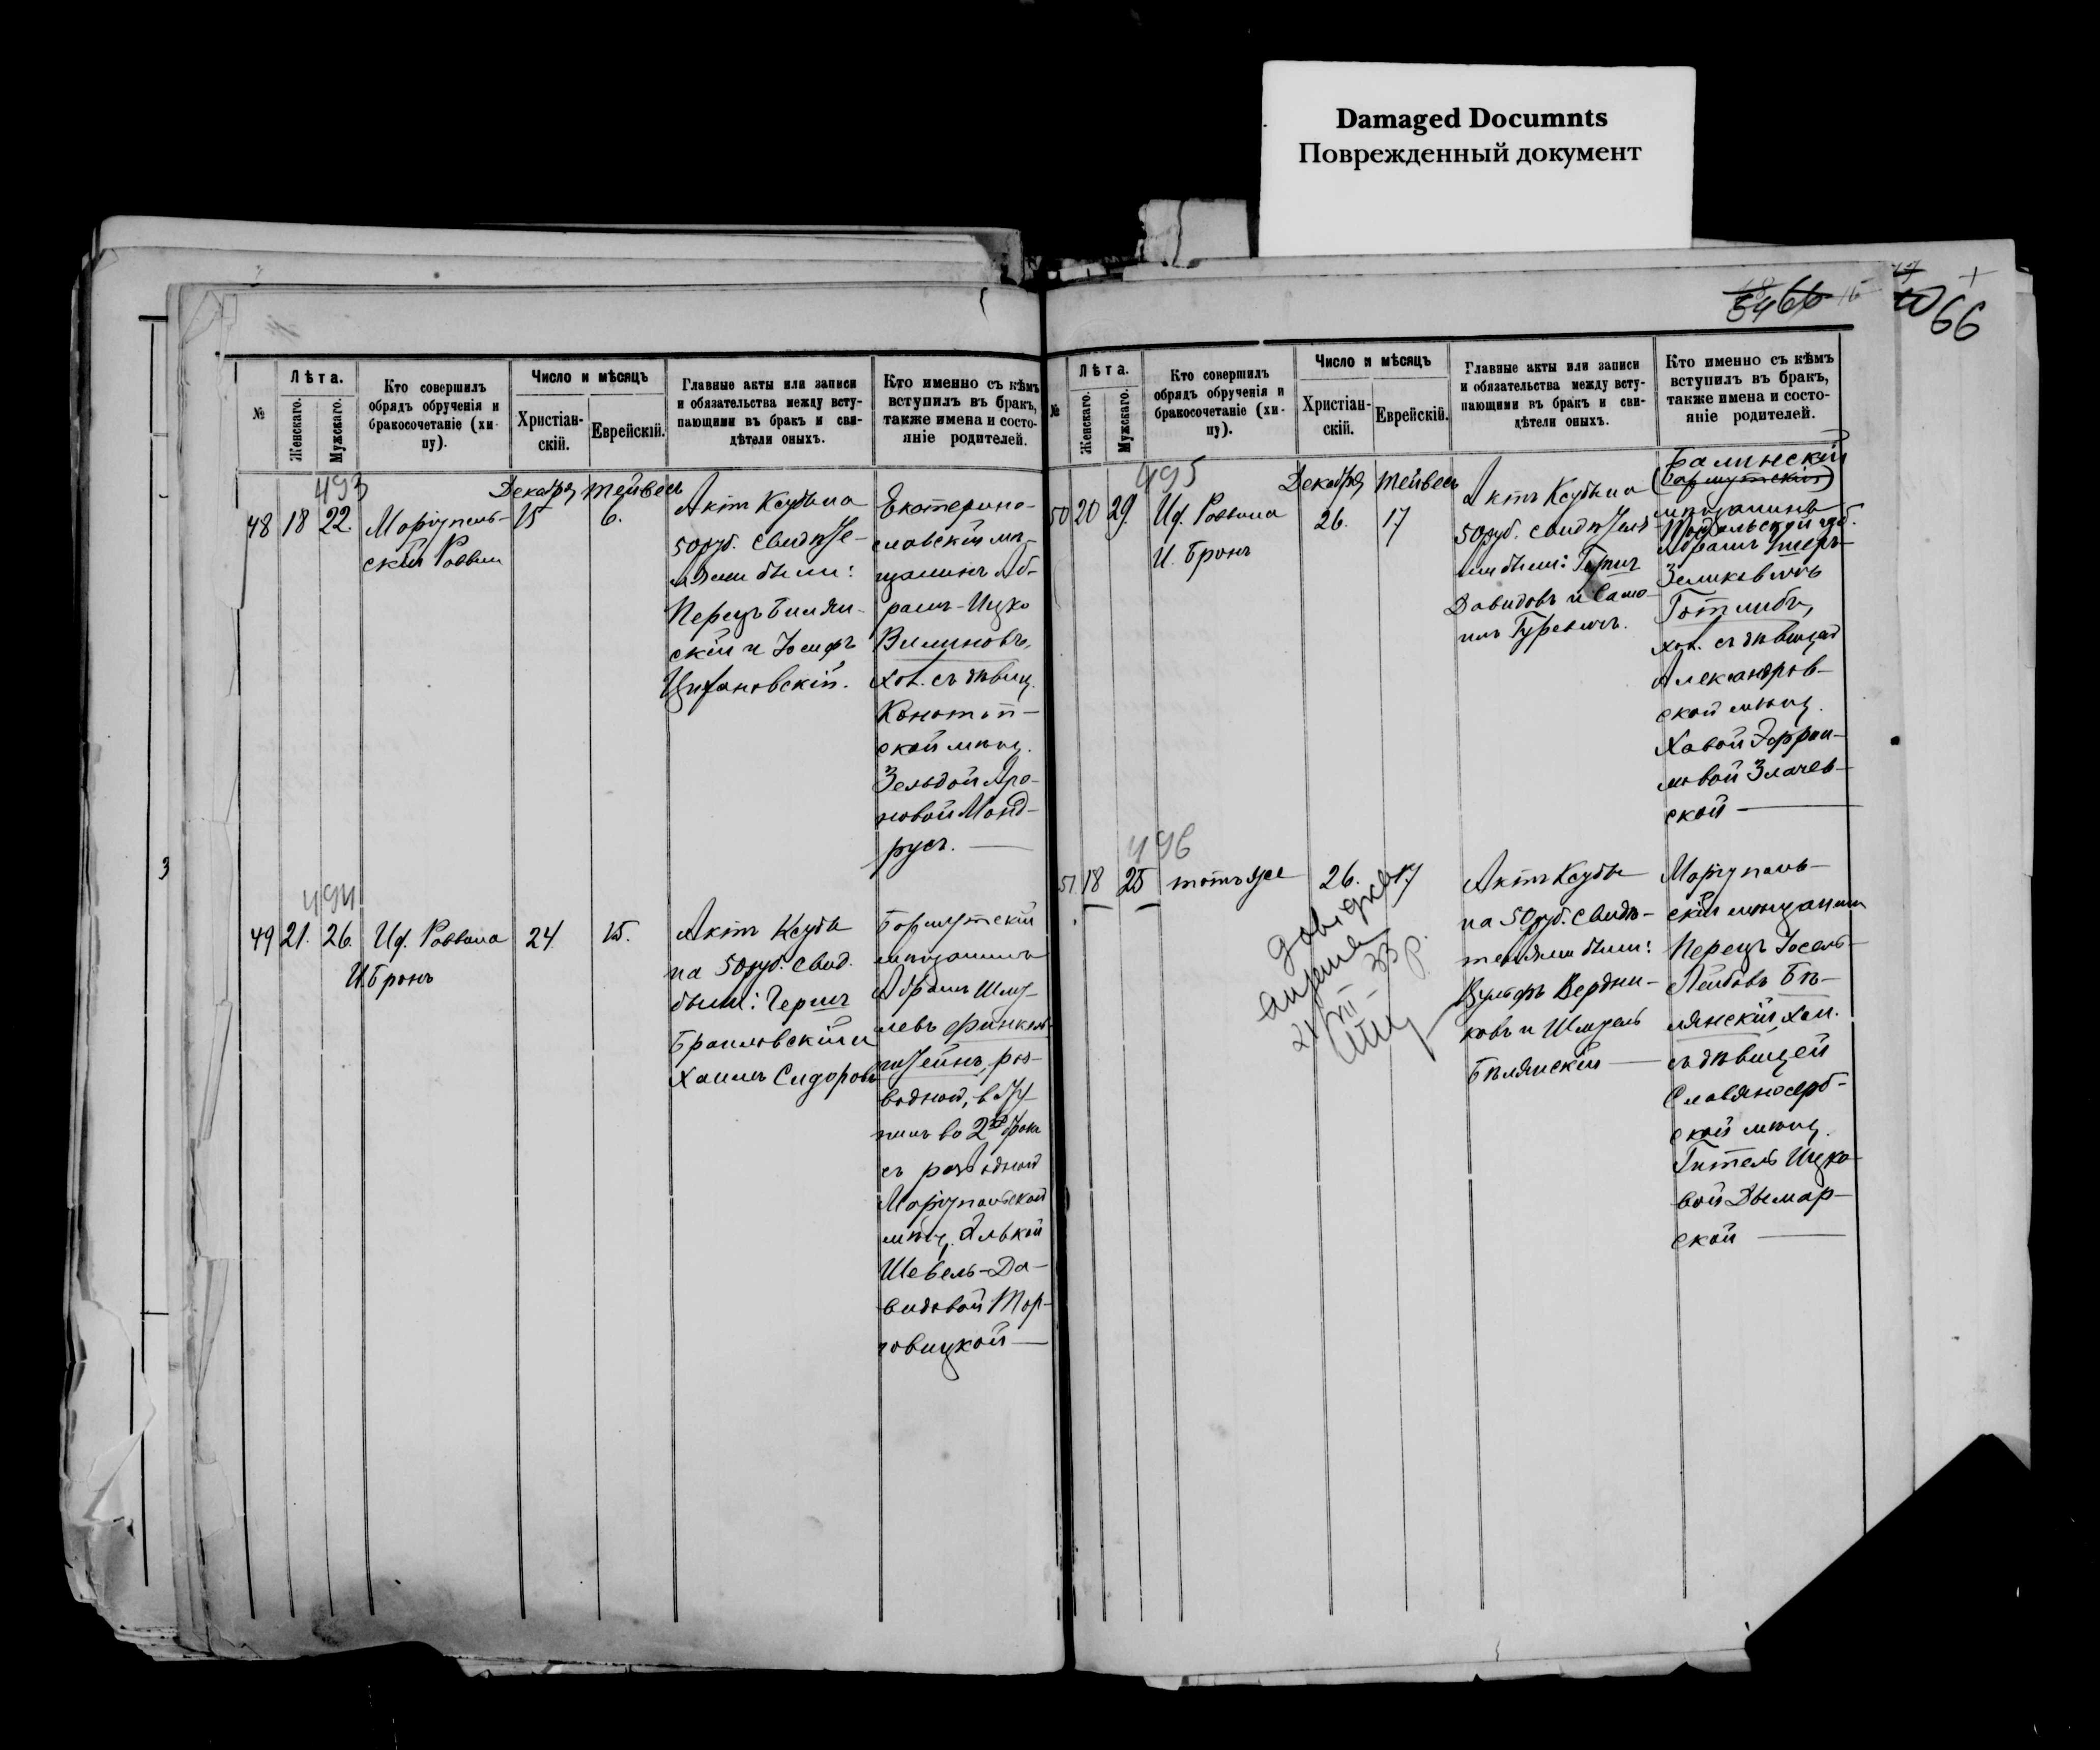 Damaged Documnts
Поврежденный документ
66
66
3
№
Лѣта.
Женскаго.
Мужскаго.
Кто совершилъ
обрядъ обрученія и
бракосочетаніе (хи-
пу).
Число и мѣсяцъ
Христіан-
скій.
Еврейскій.
Главные акты или записи
и обязательства между всту-
пающими въ бракъ и сви-
дѣтели оныхъ.
Кто именно съ кѣмъ
вступилъ въ бракъ,
также имена и состо-
яніе родителей.
493
48 18 22.
Маріуполь-
скій Раввин
Декабря Тейвесъ
15 6.
Актъ Ксубы на
50 руб. свидѣте-
лями были:
Перецъ Билян-
скій и Іосифъ
Цыгановскій.
Екатерино-
славскій мѣ-
щанинъ Аб-
рамъ-Ицко
Вилиновъ,
хол. съ дѣвиц.
Конотоп-
ской мѣщ.
Зельдой Аро-
новой Манд-
русъ.
494
49 21. 26.
И.д. Раввина
И. Бронъ
24. 15.
Актъ Ксубы
на 50 руб. свид.
были: Гершъ
Браиловскій и
Хаимъ Сидоровъ
Бармутскій
мѣщанинъ
Абрамъ Шму-
левъ Финкель-
штейнъ, раз-
водной, всту-
пилъ во 2й бракъ
съ разводной
Маріупольской
мѣщ. Элькой
Шевель-Да-
видовой Тор-
говицкой
№
Лѣта.
Женскаго.
Мужскаго.
Кто совершилъ
обрядъ обрученія и
бракосочетаніе (хи-
пу).
Число и мѣсяцъ
Христіан-
скій.
Еврейскій.
Главные акты или записи
и обязательства между всту-
пающими въ бракъ и сви-
дѣтели оныхъ.
Кто именно съ кѣмъ
вступилъ въ бракъ,
также имена и состо-
яніе родителей.
495
50 20 29.
И.д. Раввина
И. Бронъ
Декабря Тейвесъ
26. 17
Актъ Ксубы на
50 руб. свидѣтеля-
ми были:
Давидовъ и Само-
илъ Гуревичъ.
Балинскій
(Бармутскій)
мѣщанинъ
Подольской губ.
Абрамъ
Зеликовичъ
Готлибъ,
хол. съ дѣвицей
Александров-
ской мѣщ.
Хавой Эфраи-
мовой Злачев-
ской
496
51 18 25
тотъ же
26. 17
Актъ Ксубы
на 50 руб. свидѣ-
телями были:
Вульфъ Вердни-
ковъ и Шмуель
Бѣлянскій
Маріуполь-
скій мѣщанинъ
Перецъ Іосель-
Лейбовъ Бѣ-
лянскій, хол.
съ дѣвицей
Славяносерб-
ской мѣщ.
Гитель Ицко-
вой Дымар-
ской
Довідка